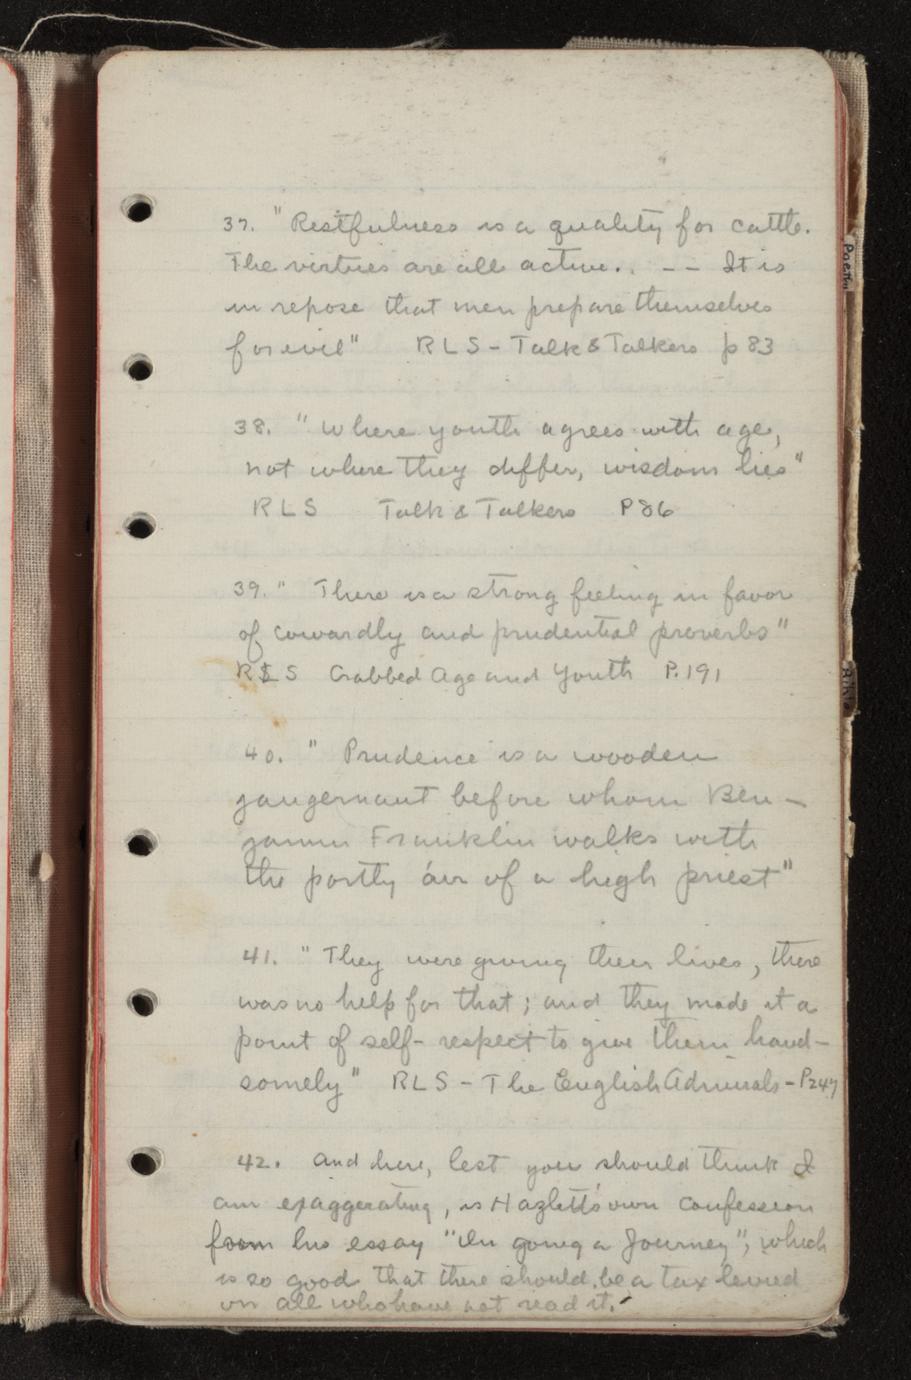 37. "Restfulness is a quality for cattle.
The virtues are all active.. -- It is
in repose that men prepare themselves
for evil" RLS - Talk & Talkers p 83
38. "Where youth agrees with age,
not where they differ, wisdom lies"
RLS Talk & Talkers P86
39. " There is a strong feeling in favor
of cowardly and prudential proverbs"
RLS Crabbed Age and Youth P.191
40. " Prudence is a wooden
jaugernaut before whom Ben-
jamin Franklin walks with
the portly air of a high priest"
41. " They were giving their lives, there
was no help for that; and they made it a
point of self-respect to give them hand-
somely" RLS - The English Admirals - P247
42. And here, lest you should think I
am exaggerating, is Hazlett's own confession
from his essay "On going a Journey", which
is so good that there should be a tax levied
on all who have not read it.
Poetry
Bible